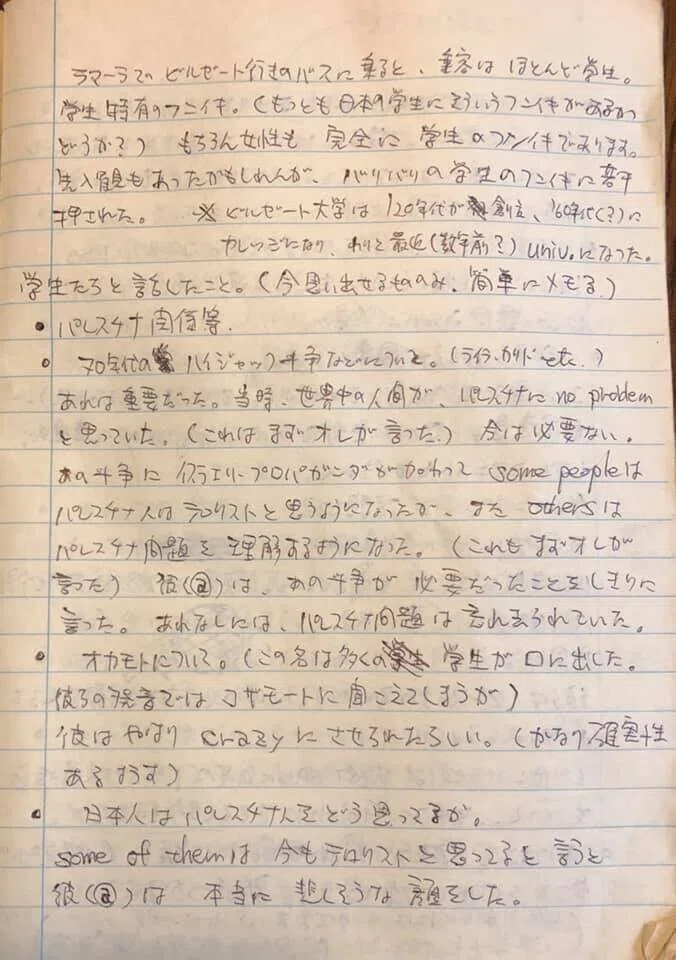 ラマーラでのビルゼート行きのバスに乗ると、乗客はほとんど学生。
学生特有のフンイキ。(もっとも日本の学生にそういうフンイキがあるか
どうか?) もちろん女性も 完全に 学生のフンイキであります。
先入観もあったかもしれんが、バリバリの学生のフンイキに若干
押された。 ※ビルゼート大学は '20年代が創立、'60年代(?)に
カレッジになり、わりと最近(数年前?) univ.になった。
学生たちと話したこと。(今思い出せるもののみ、簡単にメモる)
• パレスチナ関係等.
• 70年代のハイジャック斗争などについて。(ライラ・カリドetc.)
あれは重要だった。当時、世界中の人間が、パレスチナに no problem
と思っていた。(これはまずオレが言った.) 今は必要ない。
あの斗争に イスラエリープロパガンダが加わって some peopleは
パレスチナ人はテロリストと思うようになったが、また othersは
パレスチナ問題を理解するようになった。(これもまずオレが
言った) 彼(@)は、あの斗争が必要だったことをしきりに
言った。あれなしには、パレスチナ問題は忘れ去られていた。
• オカモトについて。(この名は多くの学生が口に出した。
彼らの発音ではコザモートに聞こえてしまうが)
彼はやはり crazyに させられたらしい。(かなり確実性
あるようす)
• 日本人はパレスチナ人をどう思ってるか。
some of themは 今もテロリストと思ってると言うと
彼(@)は 本当に 悲しそうな 顔をした。